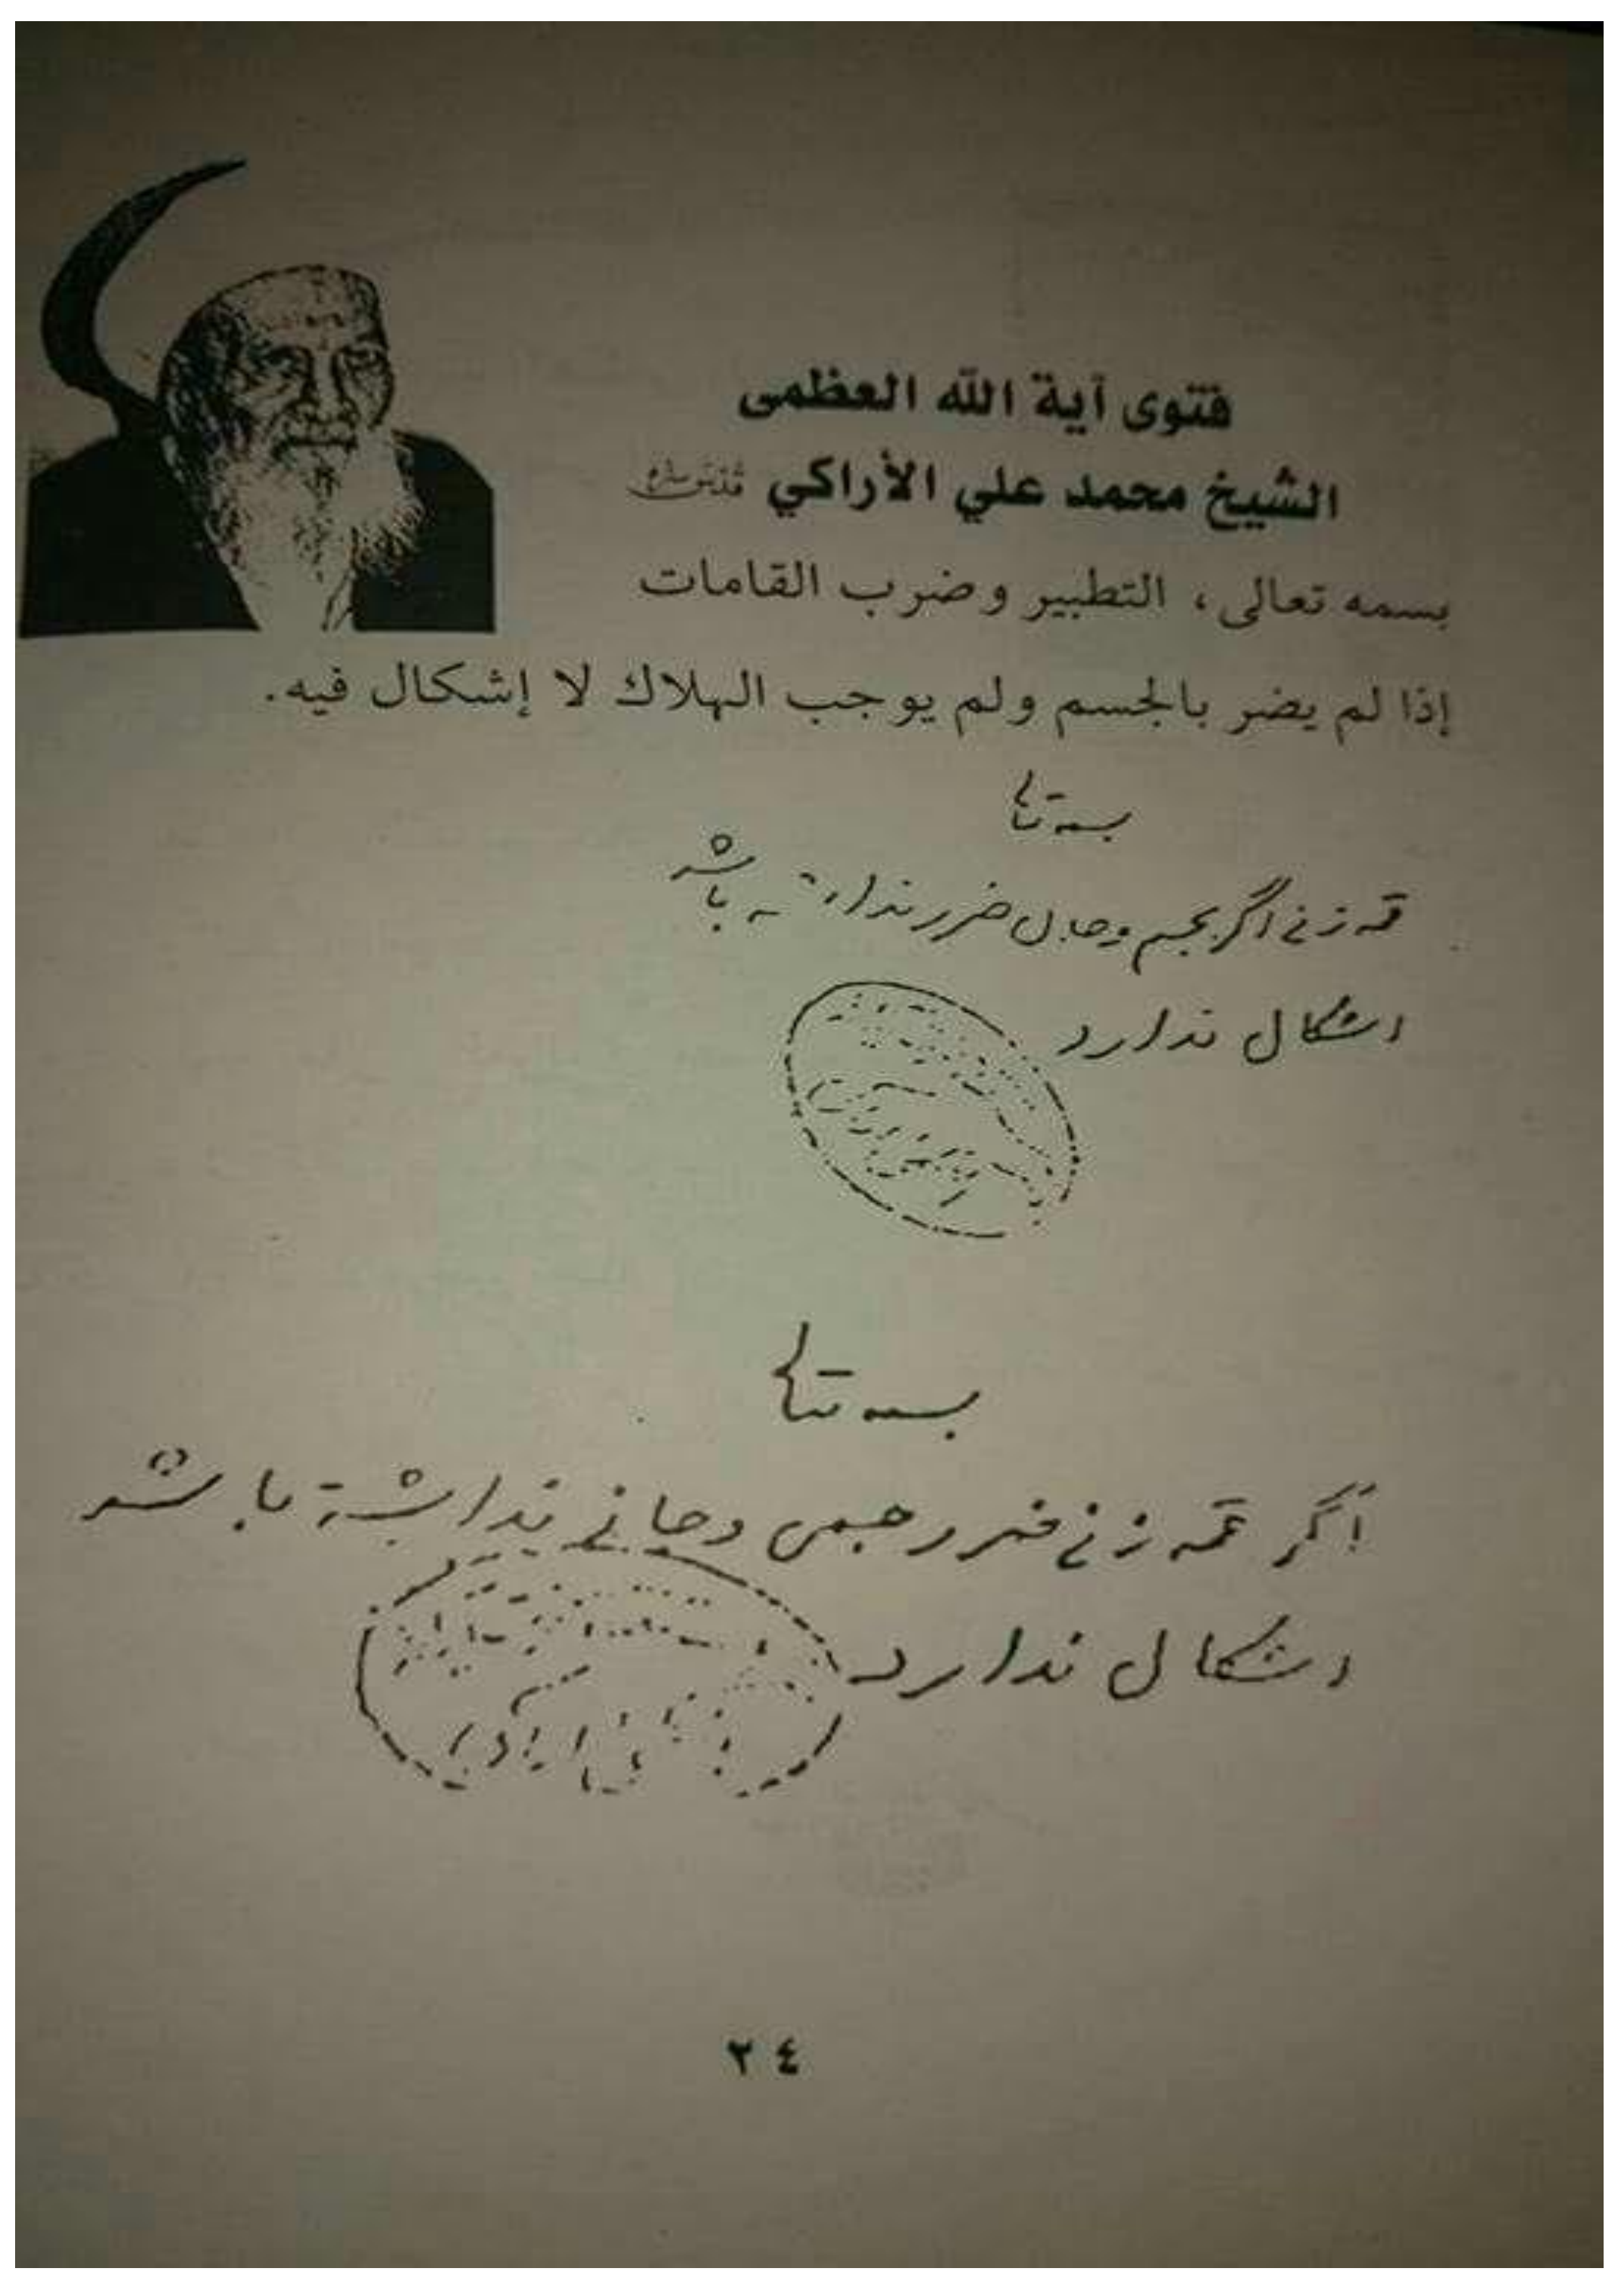 فتوى آية الله العظمى
الشيخ محمد علي الأراكي قدس سره
بسمه تعالى، التطبير وضرب القامات
إذا لم يضر بالجسم ولم يوجب الهلاك لا إشكال فيه.
بسمه تعالی
قمه زنی اگر بجسم و جان ضرر نداشته باشد
اشکال ندارد
بسمه تعالی
اگر قمه زنی ضرر جسمی و جانی نداشته باشد
اشکال ندارد
٢٤